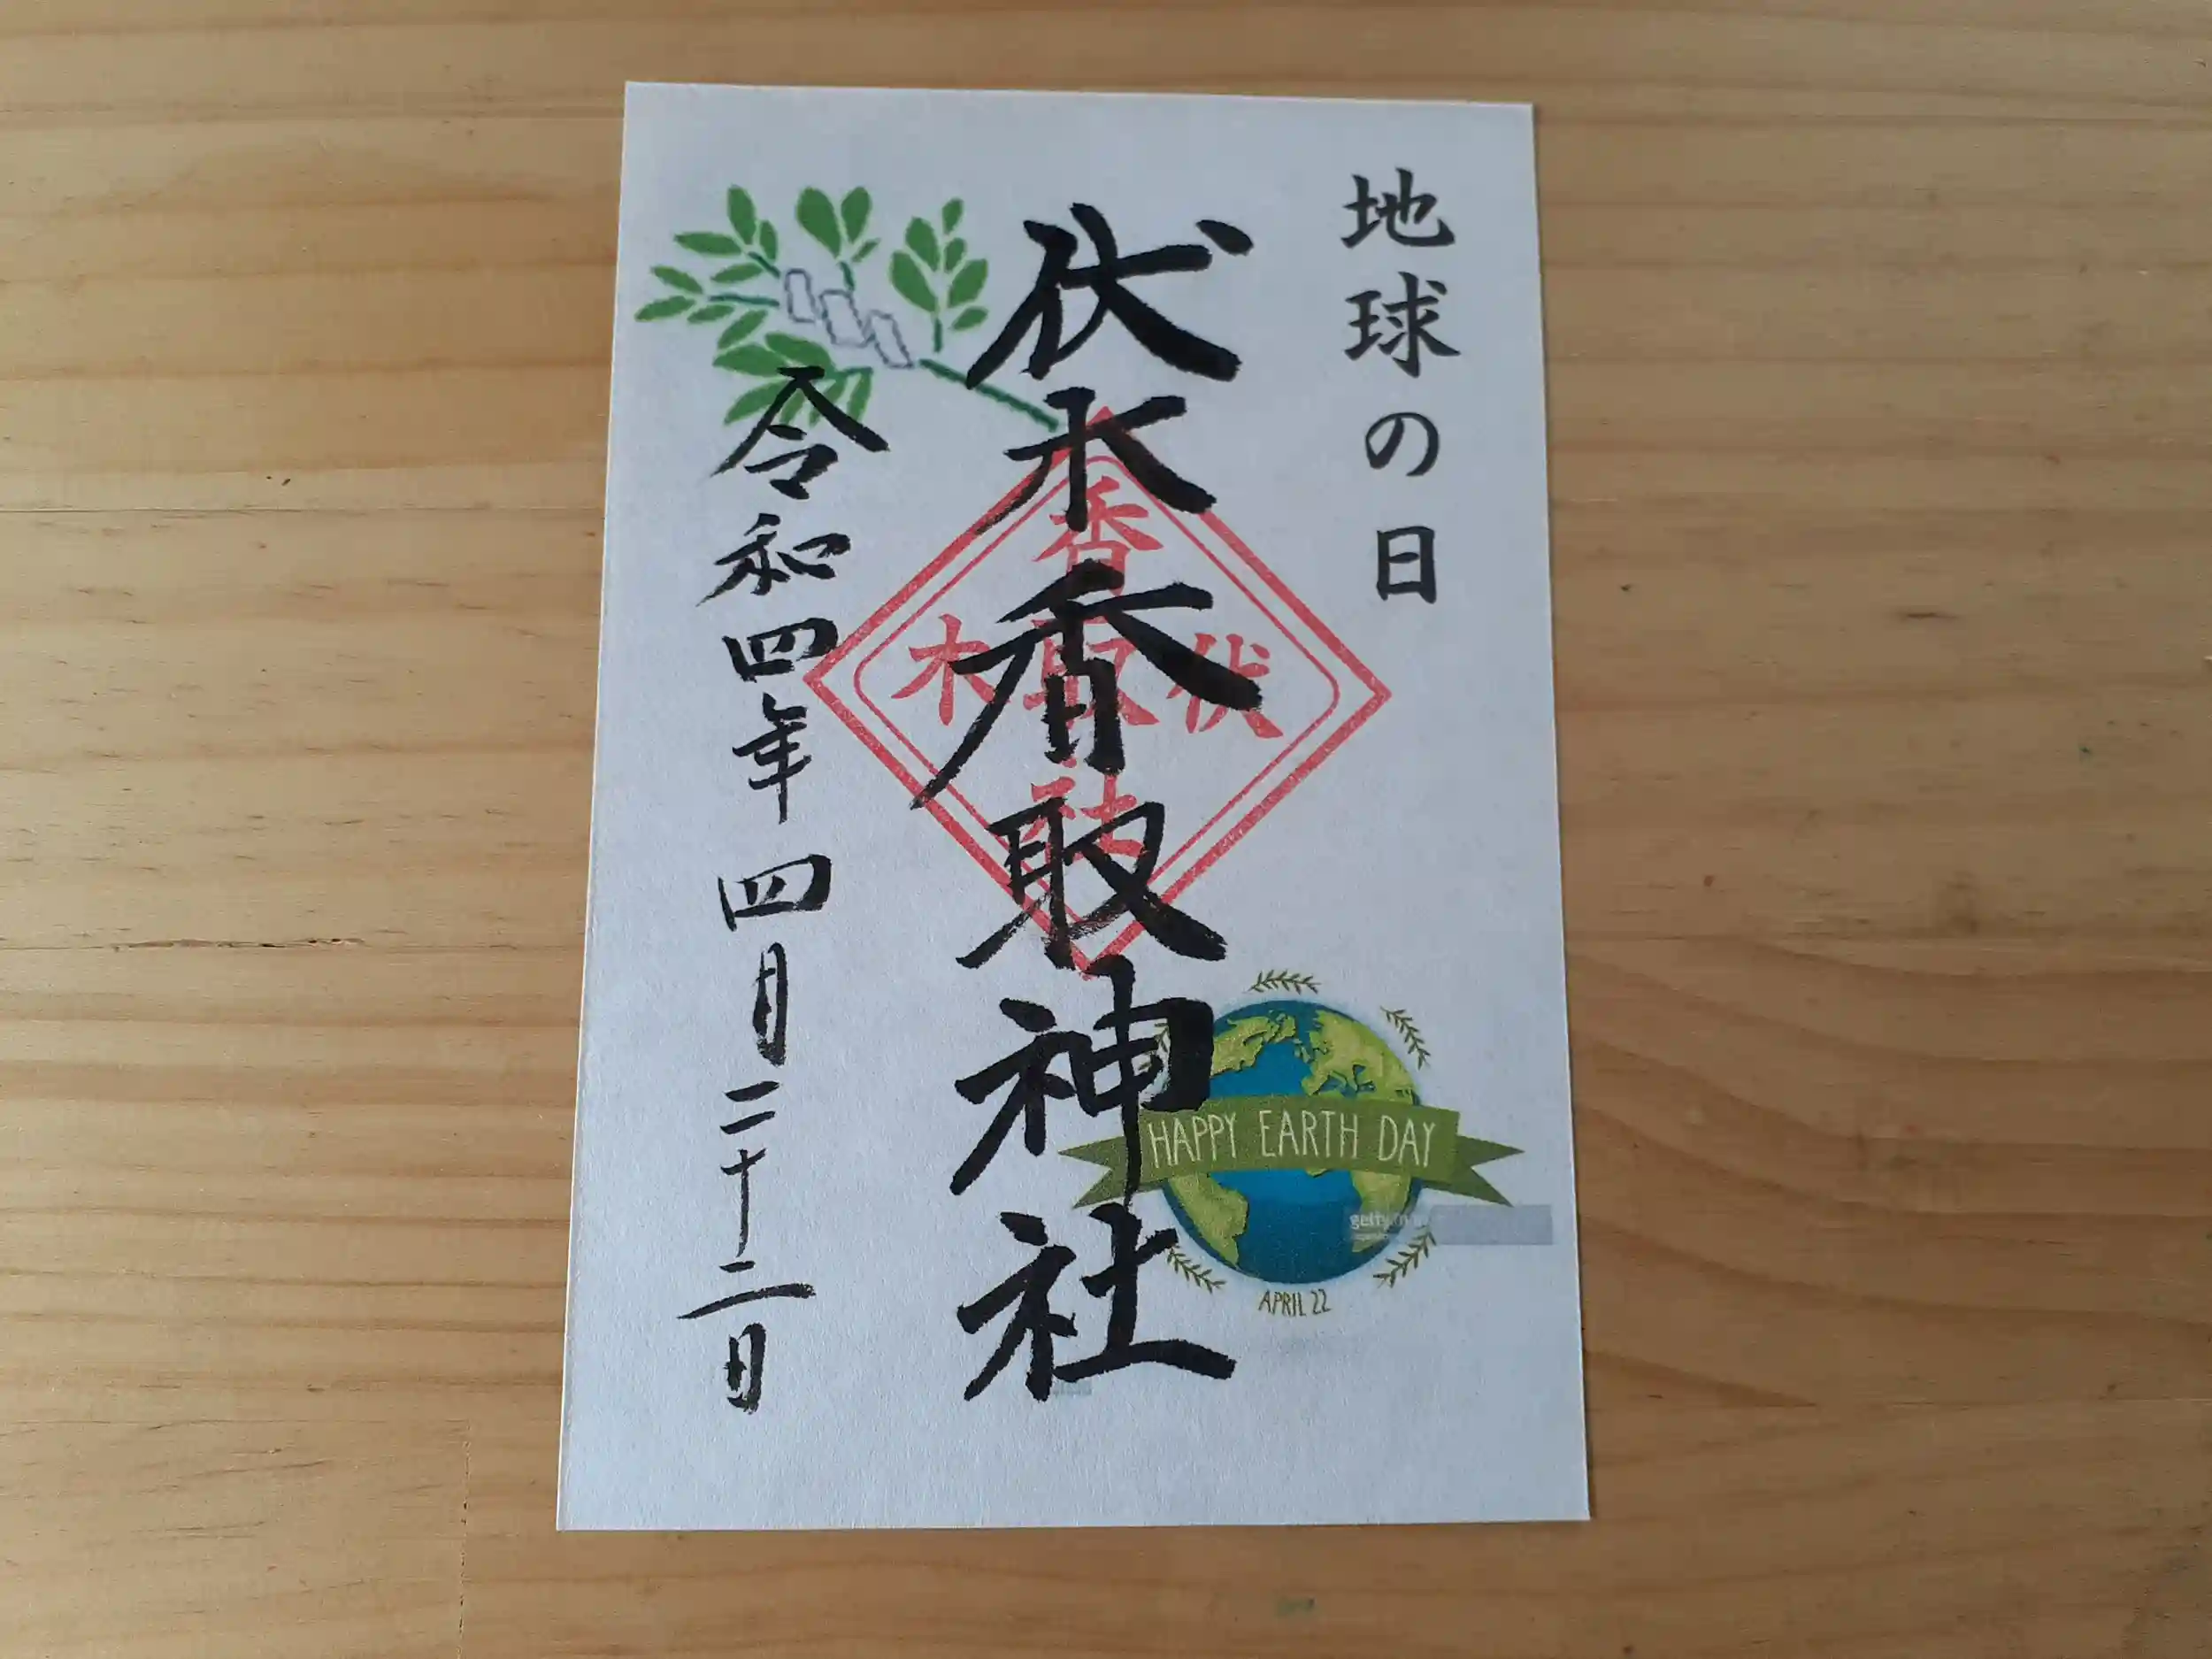 地球の日
伏木香取神社
香
伏 取 木
社
令和四年 四月二十二日
HAPPY EARTH DAY
APRIL 22